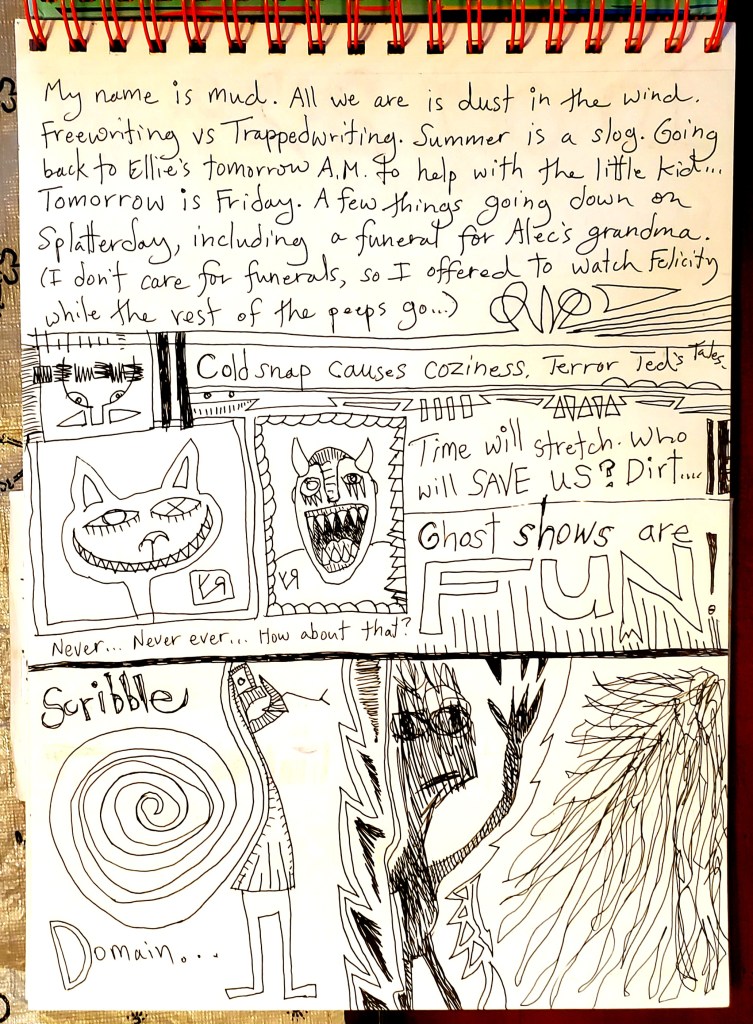 My name is mud. All we are is dust in the wind.
Freewriting vs Trappedwriting. Summer is a slog. Going
back to Ellie's tomorrow A.M. to help with the little kid...
Tomorrow is Friday. A few things going down on
Splatterday, including a funeral for Alec's grandma.
(I don't care for funerals, so I offered to watch Felicity
while the rest of the peeps go...)
Cold snap causes coziness. Terror Ted's Tales.
Time will stretch. Who
will SAVE US? Dirt....
Ghost shows are
FUN!
Never... Never ever... How about that?
Scribble
Domain...